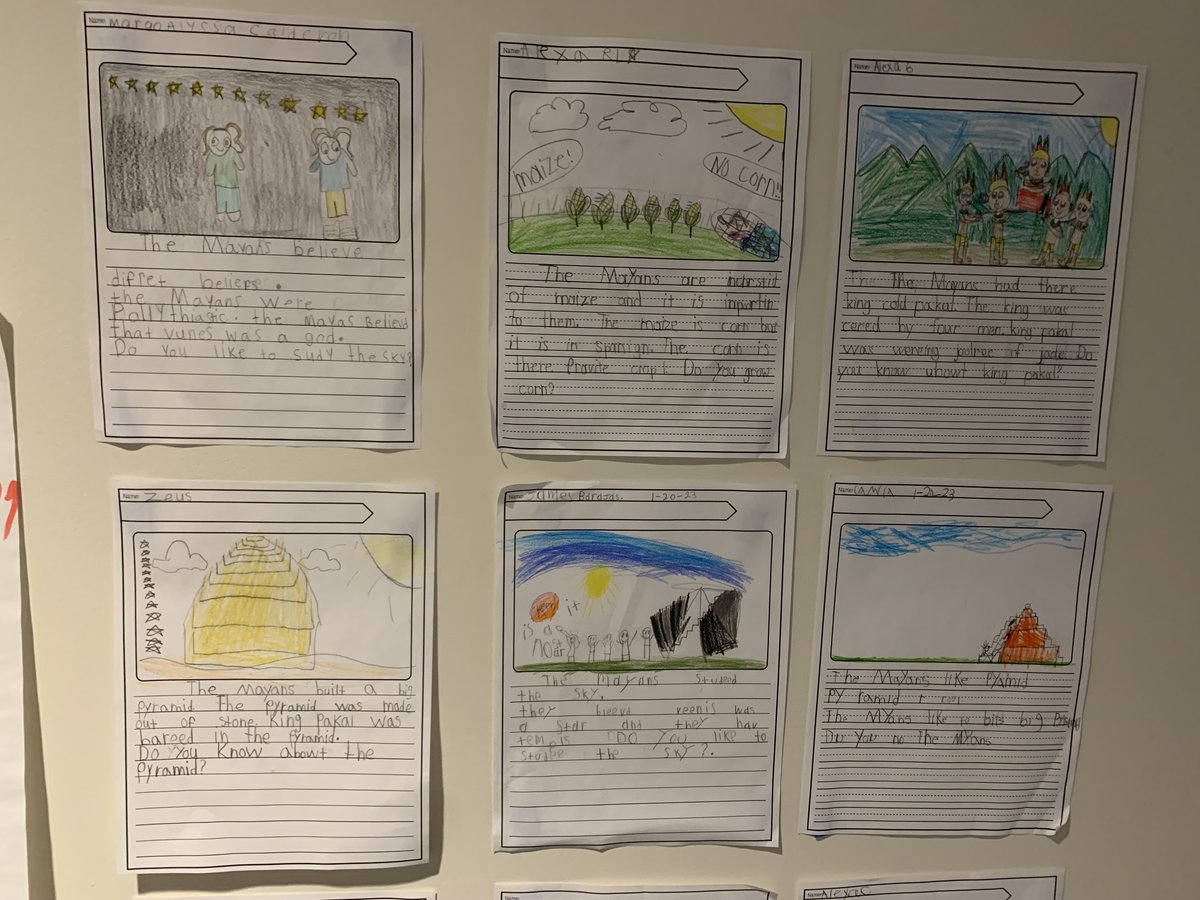 Name: MargoAlyssa Calderon
The Mayans believe
difret beliefs.
the Mayans were
Pollythiagtic. the mayas Believed
that vunes was a god.
Do you like to sudy the sky?
Name: Alexa R
maize!
No corn!!
The Mayans are
of maize and it is importin
to them. The maize is corn but
it is in spanign. The corn is
there fravite crop. Do you grow
corn?
Name: Alexa G
The Mayans had there
king cold pakal. The king was
cered by four men. king pakal
was wereing of jade. Do
you know ubowt king pakal?
Name: Zeus
The Mayans built a big
pyramid The pyramid was made
out of stone. King Pakal was
bareed in the Pyramid.
Do You Know about the
pyramid?
Name: James Barajas. 1-20-23
it
is a
no star
The Mayans studed
the sky.
they was
a star and they hav
DO YOU like to
the sky?.
Name: 1-20-23
The Mayans like Pyamid
Pyramid
The MYans like to bits big
Du You no the MYans
Name: AlexaC